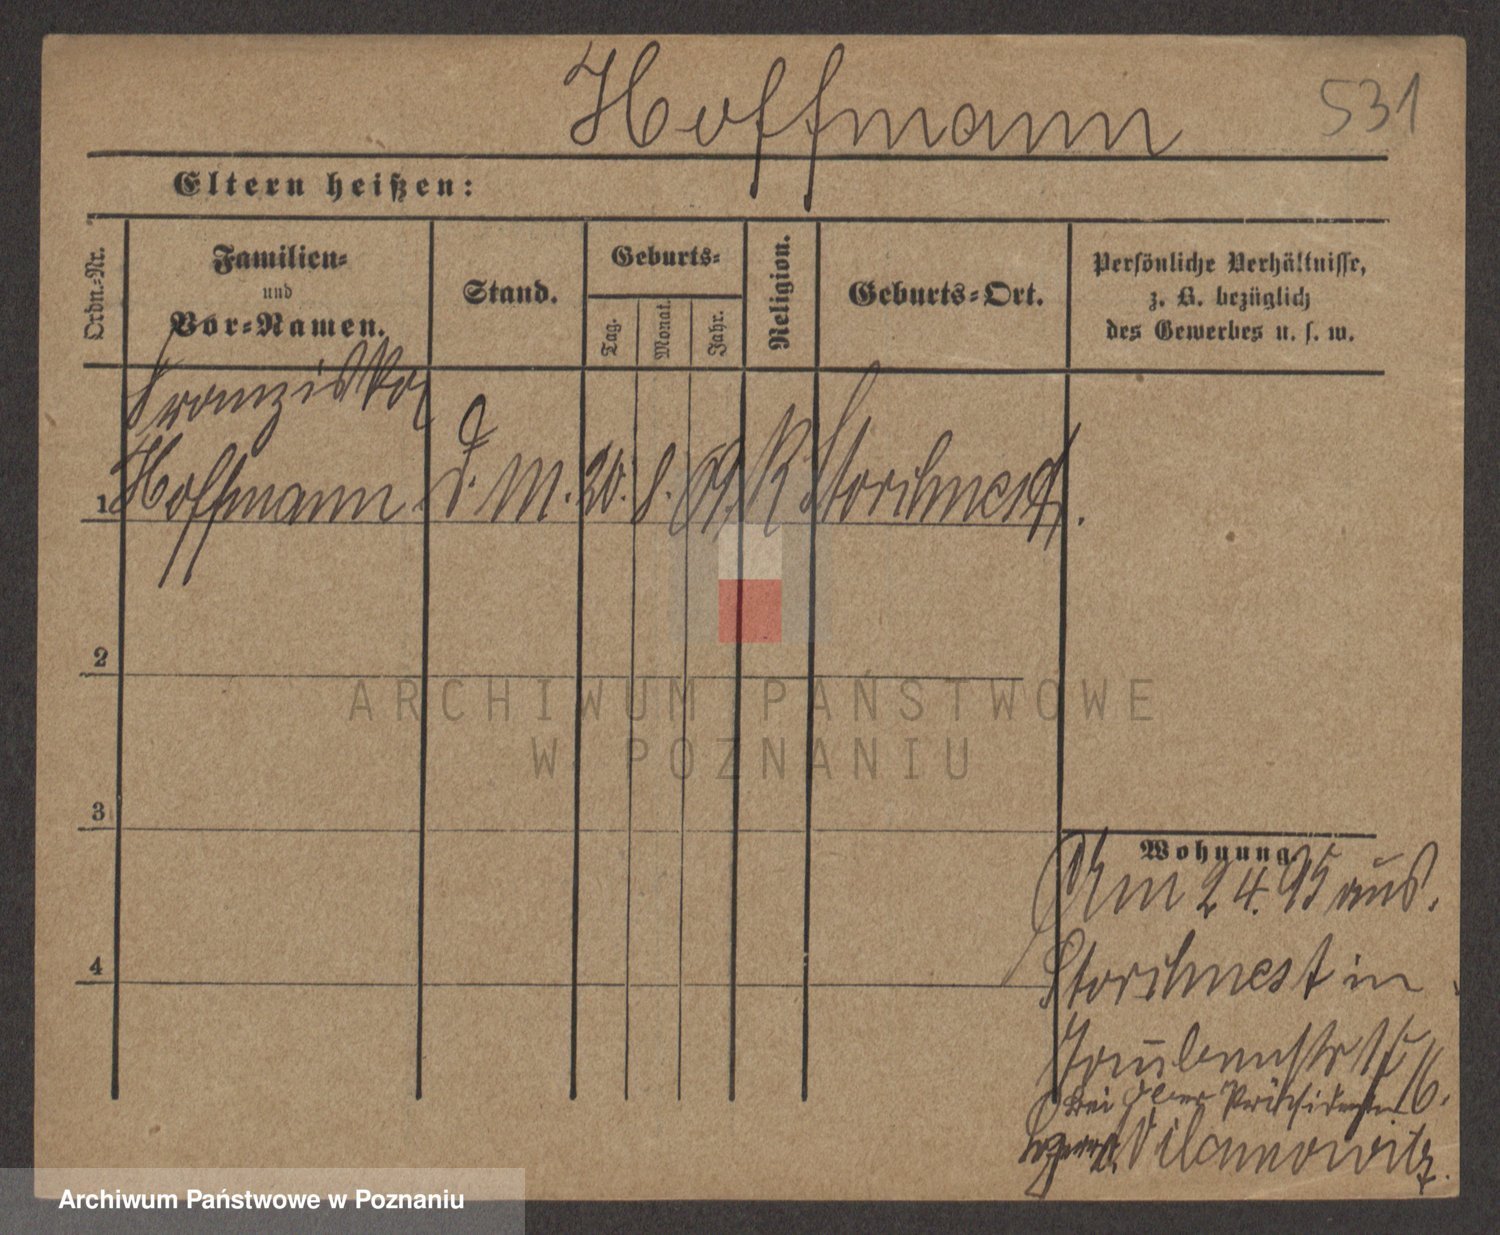 Hoffmann
531
Eltern heißen:
Ordn.-Nr.
Familien-
und
Vor-Namen.
Stand.
Geburts-
Tag.
Monat.
Jahr.
Religion.
Geburts-Ort.
Persönliche Verhältnisse,
z. B. bezüglich
des Gewerbes u. s. w.
Franziska
1 Hoffmann d. M. 20. 8. 69. K Storchnest.
2
3
4
Wohnung
Am 2 4. 95 aus
Storchnest in
Taubenstr
bei Ober Präsidenten
Wilamowitz
ARCHIWUM PAŃSTWOWE
W POZNANIU
Archiwum Państwowe w Poznaniu